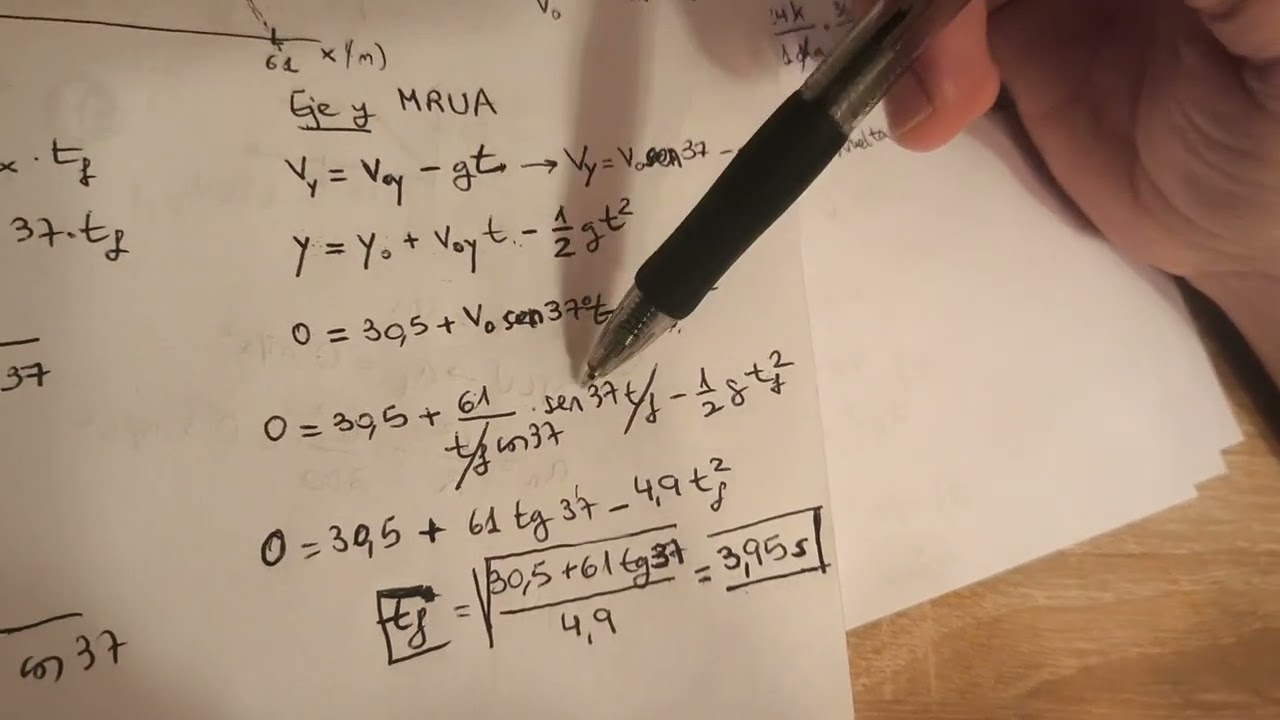 V₀
61 x(m)
Eje y MRUA
x · t_f
V_y = V_oy - gt → V_y = V₀ sen 37 -
37 · t_f
y = y₀ + V_oy t - 1/2 gt²
0 = 30,5 + V₀ sen 37º t
37
0 = 30,5 + 61/(t_f cos 37) · sen 37 t_f - 1/2 g t_f²
0 = 30,5 + 61 tg 37 - 4,9 t_f²
t_f = √((30,5 + 61 tg 37)/4,9) = 3,95 s
cos 37